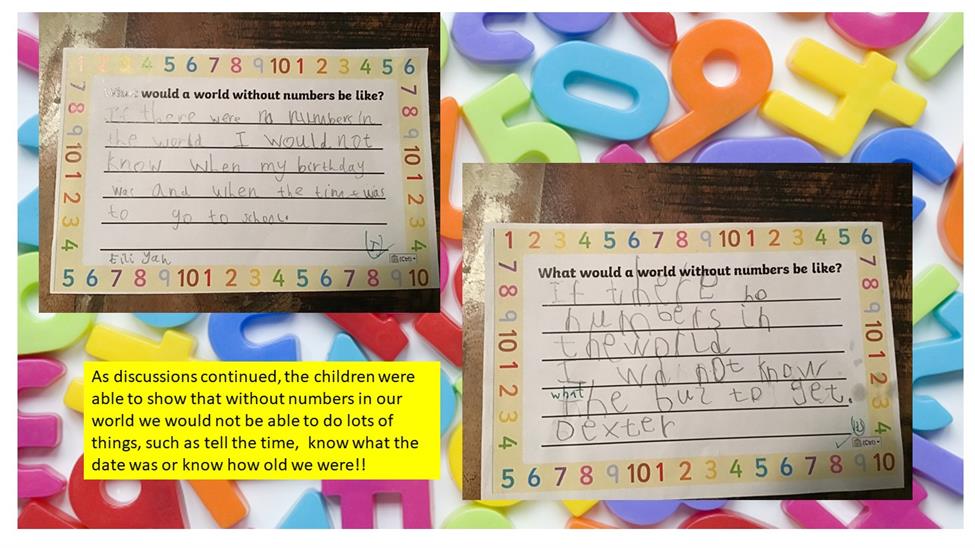 1 2 3 4 5 6 7 8 9 10 1 2 3 4 5 6
What would a world without numbers be like?
If there were no numbers in
the world I would not
know when my birthday
was and when the time was
to go to school.
7 8 9 10 1 2 3 4
7 8 9 10 1 2 3 4
5 6 7 8 9 10
As discussions continued, the children were
able to show that without numbers in our
world we would not be able to do lots of
things, such as tell the time, know what the
date was or know how old we were!!
1 2 3 4 5 6 7 8 9 10 1 2 3 4 5 6
What would a world without numbers be like?
If there no
numbers in
the world
I wd not know
what
the bus to get.
Dexter
7 8 9 10 1 2 3 4
7 8 9 10 1 2 3 4
5 6 7 8 9 10 1 2 3 4 5 6 7 8 9 10
(Ctrl)
0 9 4
5